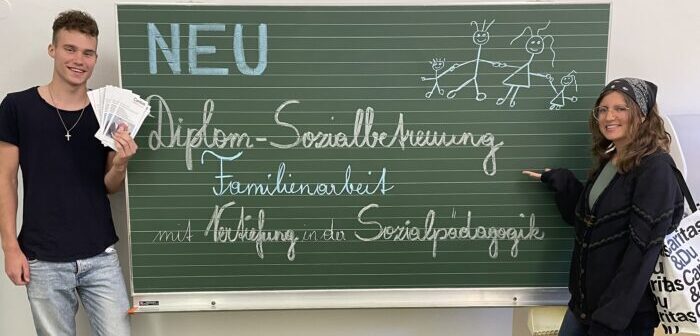 NEU
Diplom-Sozialbetreuung
Familienarbeit
mit Vertiefung in der Sozialpädagogik
Caritas
&Du
Caritas
&Du